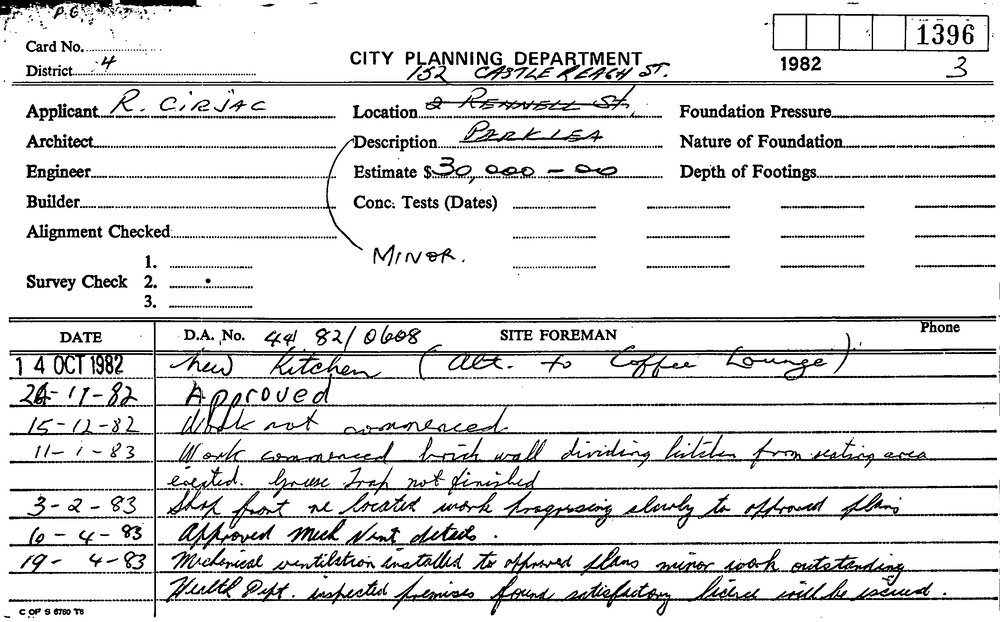 P6
Card No.
1396
CITY PLANNING DEPARTMENT
1982
District 4
152 CASTLEREAGH ST.
3
Applicant R. CIRJAC
Location 2 RENNELL St,
Foundation Pressure
Architect
Description PARKLEA
Nature of Foundation
Engineer
Estimate $30,000-00
Depth of Footings
Builder
Conc. Tests (Dates)
Alignment Checked
MINOR.
1.
Survey Check 2.
3.
DATE
D.A. No. 44 82/0608
SITE FOREMAN
Phone
14 OCT 1982 New Kitchen (Alt. to Coffee Lounge)
-11-82 Approved
15-12-82 Work not commenced.
11-1-83 Work commenced brick wall dividing kitchen from seating area
erected. Grease Trap not finished
3-2-83 Shop front re located work progressing slowly to approved plans
6-4-83 Approved Mech Vent details.
19-4-83 Mechanical ventilation installed to approved plans minor work outstanding
Health Dept. inspected premises found satisfactory licence will be issued.
C OF S 6760 T6